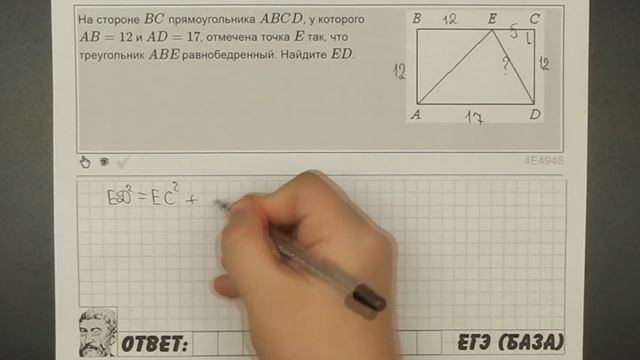 На стороне BC прямоугольника ABCD, у которого
AB = 12 и AD = 17, отмечена точка E так, что
треугольник ABE равнобедренный. Найдите ED.
B 12 E 5 C
12 ? 12
A 17 D
4E4948
ED² = EC² +
ОТВЕТ:
ЕГЭ (БАЗА)